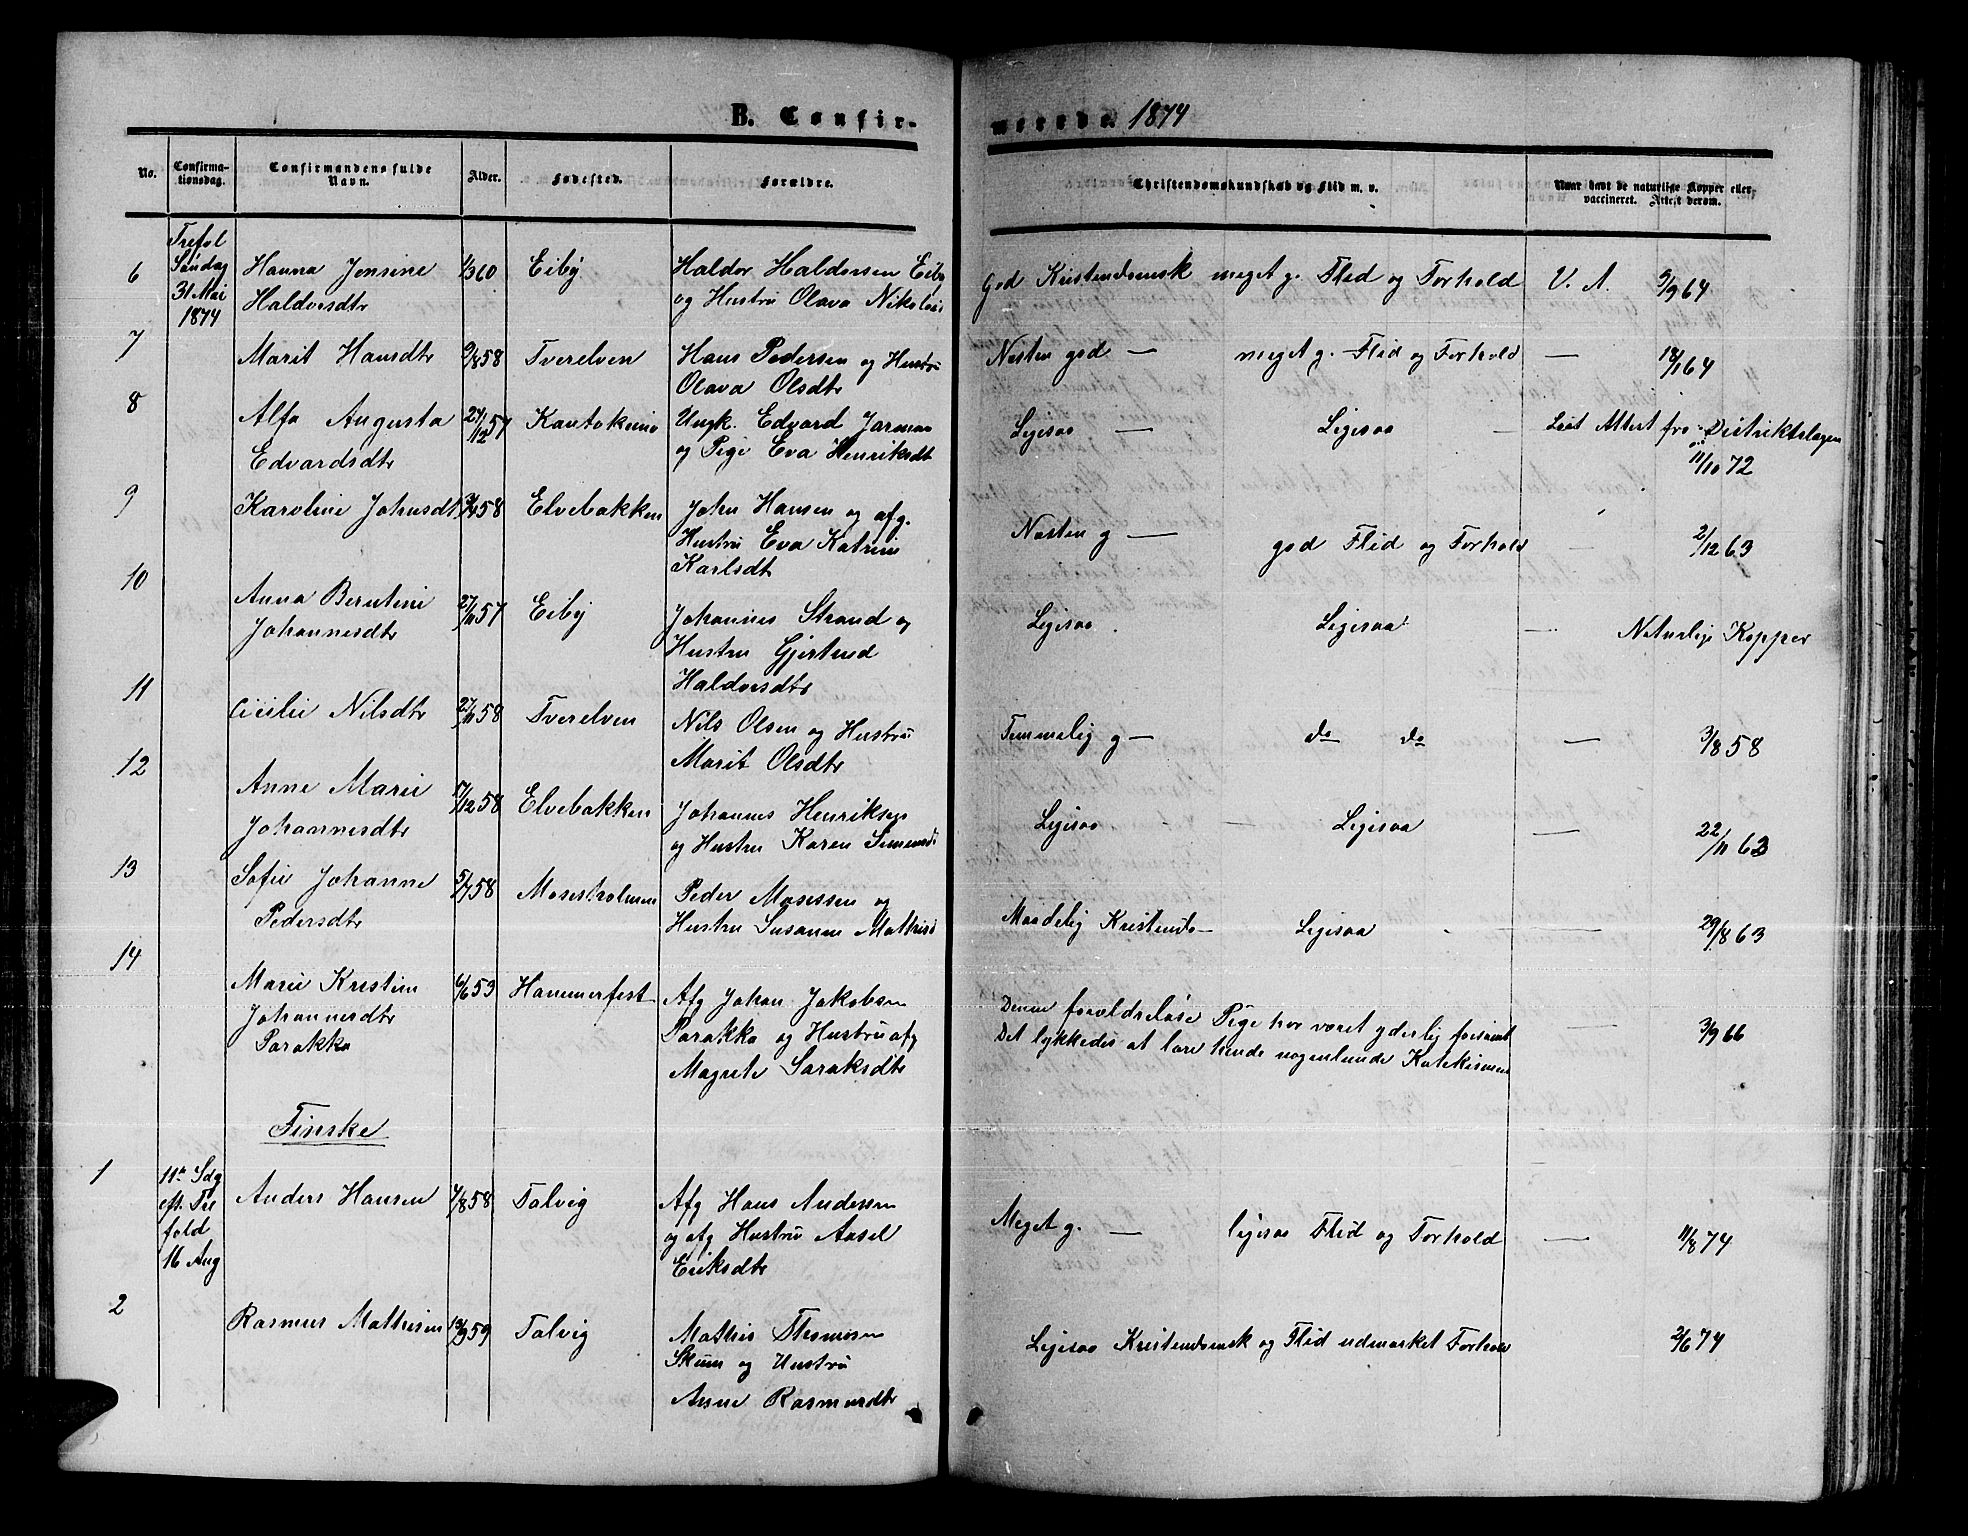 B. Confir-
merede. 1874
No.
Confirma-
tionsdag.
Confirmandens fulde
Navn.
Alder.
Fødested.
Forældre.
Christendomskundskab og Flid m. v.
Naar havt de naturlige Kopper eller
vaccineret. Attest derom.
6
Trefol
Søndag
31 Mai
1874
Hanna Jensine
Haldorsdtr
1/3 60
Eiby
Haldor Haldorsen Eiby
og Hustru Olava Nikolais
God Kristendomsk meget g. Flid og Forhold V. A. 5/9 64
7
Marit Hansdtr
9/8 58
Tverelven
Hans Pedersen og Hustru
Olava Olsdtr
Næsten god — meget g. Flid og Forhold — 18/1 64
8
Alfa Augusta
Edvardsdtr
24/12 57
Kautokeino
Ungk. Edvard Jarman
og Pige Eva Henriksdt
Ligesaa — Ligesaa — Laat Attest fra Distriktslægen
11/10 72
9
Karoline Johnsdt
58
Elvebakken
John Hansen og afg.
Hustru Eva Katrine
Karlsdt
Næsten g — god Flid og Forhold — 2/12 63
10
Anna Berntine
Johannesdtr
27/11 57
Eiby
Johannes Strand og
Hustru Gjertrud
Haldorsdtr
Ligesaa Ligesaa — Naturlige Kopper
11
Cicilie Nilsdtr
27/11 58
Tverelven
Nils Olsen og Hustru
Marit Olsdtr
Temmelig g — do do — 3/8 58
12
Anne Marie
Johannesdtr
17/12 58
Elvebakken
Johannes Henriksen
og Hustru Karen Simonsd
Ligesaa — Ligesaa — 22/11 63
13
Sofie Johanne
Pedersdtr
5/7 58
Mosesholmen
Peder Mosessen og
Hustru Susanne Mathisd
Maadelig Kristendo— Ligesaa — 29/8 63
14
Marie Kristine
Johannesdtr
Parakka
6/6 53
Hammerfest
Afg Johan Jakobsen
Parakka og Hustru afg
Magrete Saraksdtr
Denne forældreløse Pige har været yderlig forsømt
Det lykkedes at lære hende nogenlunde Katekismen
— 3/9 66
Finske
1
11te Sdg
eft. Tre
fold
16 Aug
Anders Hansen
4/8 58
Talvig
Afg Hans Andersen
og afg Hustru Aasel
Eriksdtr
Meget g. — ligesaa Flid og Forhold — 11/8 74
2
Rasmus Mathisen
13/9 59
Talvig
Mathis Thomesen
Skum og Hustru
Anne Rasmusdtr
Ligesaa Kristendomsk og Flid udmærket Forhold 2/6 74